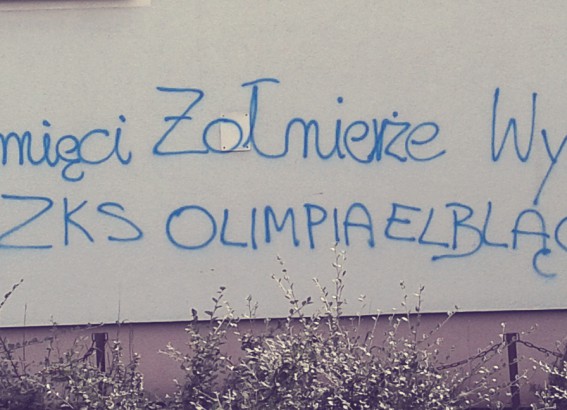 mięci Żołnierze Wy
ZKS OLIMPIA ELBLĄ